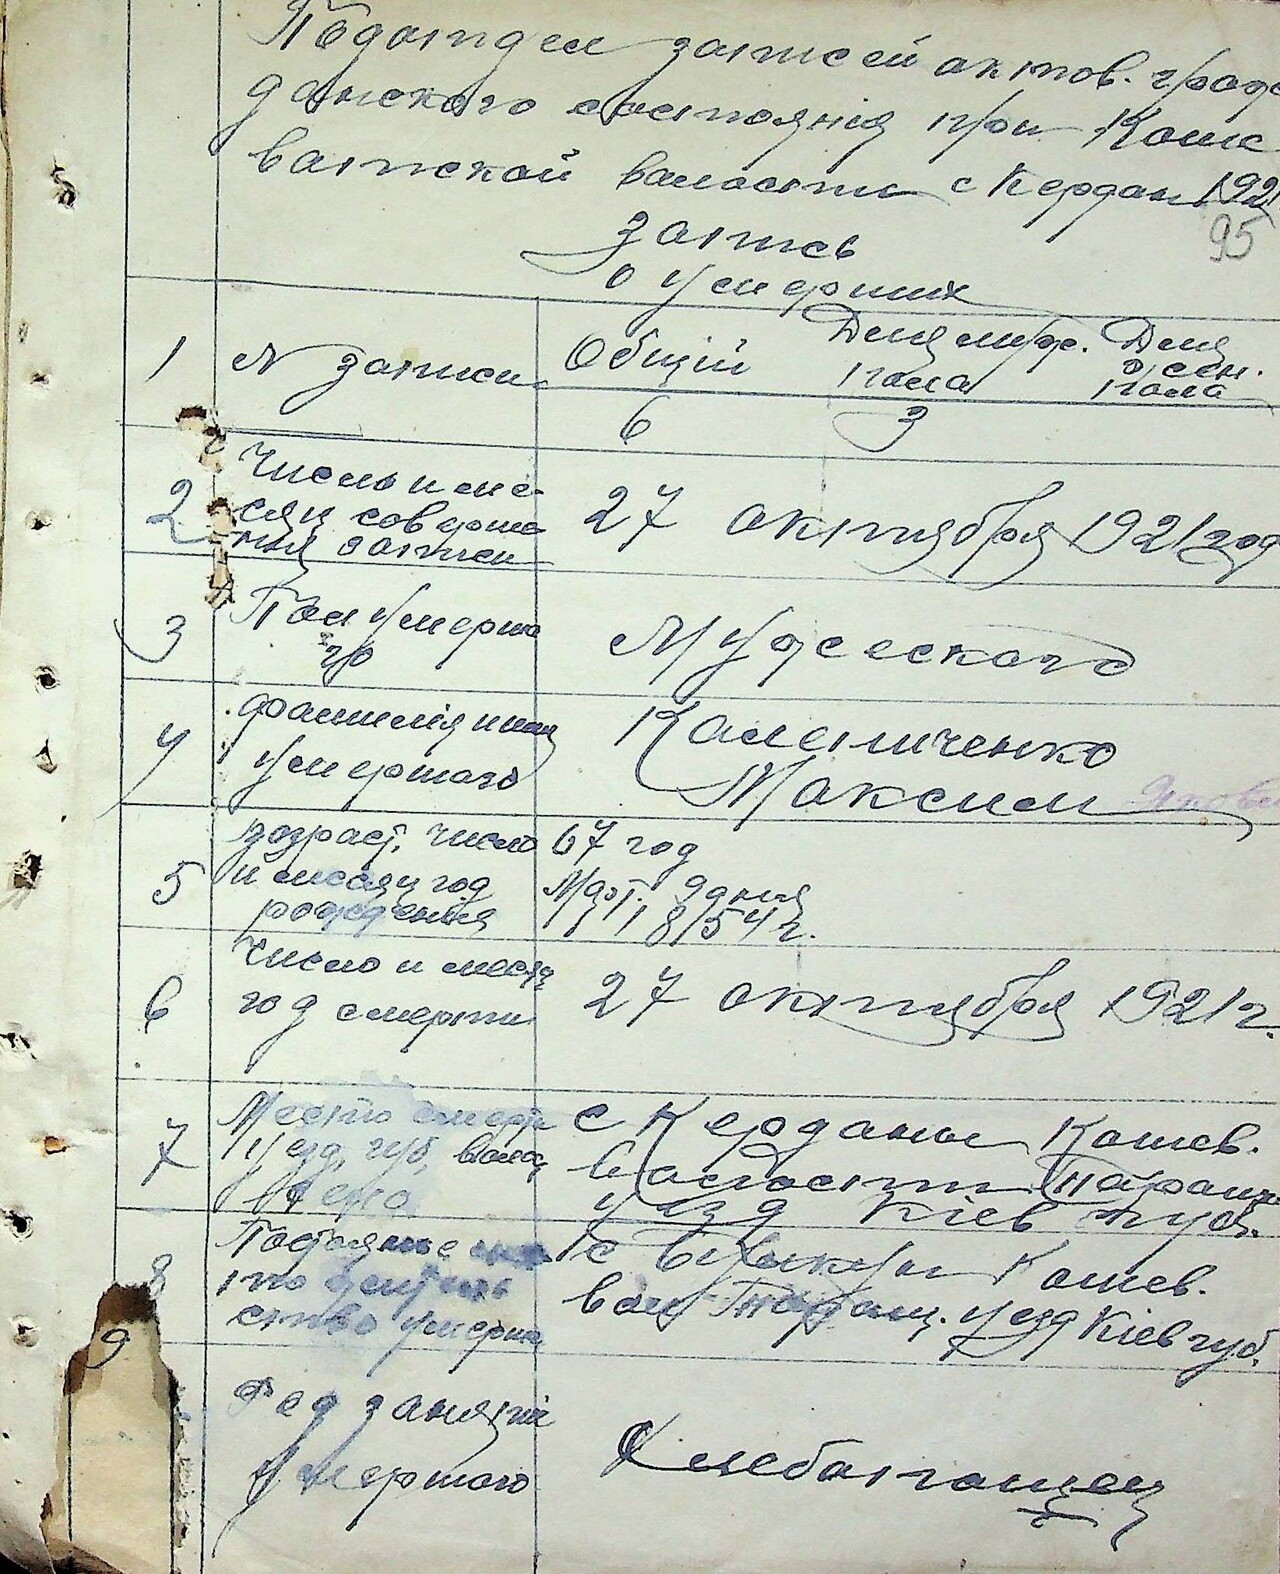 Подотдел записей актов. граж
данского состояния при Коше
ватской валости с Кердан 1921
95
Запись
о умерших
1 N записи Общій Для муж. пола Для жен. пола
6 3
2 Число и ме-
сяц соверше
ния записи 27 октября 1921 год
3 Пол умерша
го Мужеского
4 фамилия и имя
умершого Калениченко
Максим Яковл
5 возраст, число
и месяц год
рождения 67 год
Март. 9 дня
1854 г.
6 Число и месяц
год смерти 27 октября 1921 г.
7 Место смерти
уезд, губ, валос,
село с Керданы Кошев.
валости Таращ
уезд Кіев губ.
8 Постояное
жительство умерша с Кошев.
вал Таращ. уезд Кіев губ.
9 Род занятія
умершого Хлебопашец